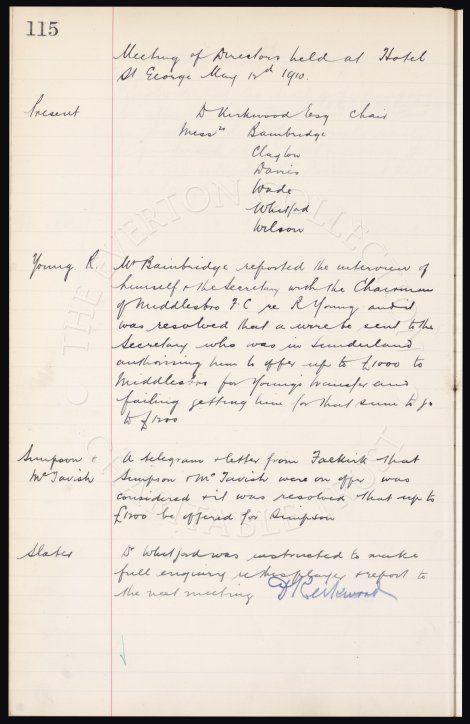 115
Meeting of Directors held at Hotel
St George May 12th 1910.
Present D Kirkwood Esq Chair
Messrs Bainbridge
Clayton
Davies
Wade
Whitford
Wilson
Young R. Mr Bainbridge reported the interview of
himself & the Secretary with the Chairman
of Middlesbro F.C re R Young and it
was resolved that a wire be sent to the
Secretary who was in Sunderland
authorising him to offer up to £1000 to
Middlesbro for Young's transfer and
failing getting him for that sum to go
to £1200
Simpson & A telegram & letter from Falkirk that
McTavish Simpson & McTavish were on offer was
considered & it was resolved that up to
£1200 be offered for Simpson
Slater Dr Whitford was instructed to make
full enquiry re this player & report to
the next meeting D Kirkwood
THE EVERTON COLLECTION
CHARITABLE TRUST